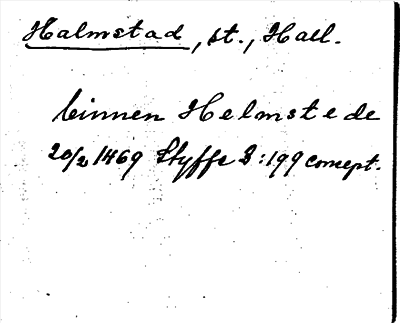 Halmstad, st., Hall.
binnen Helmstede
20/2 1469 Styffe 3:199 concept.